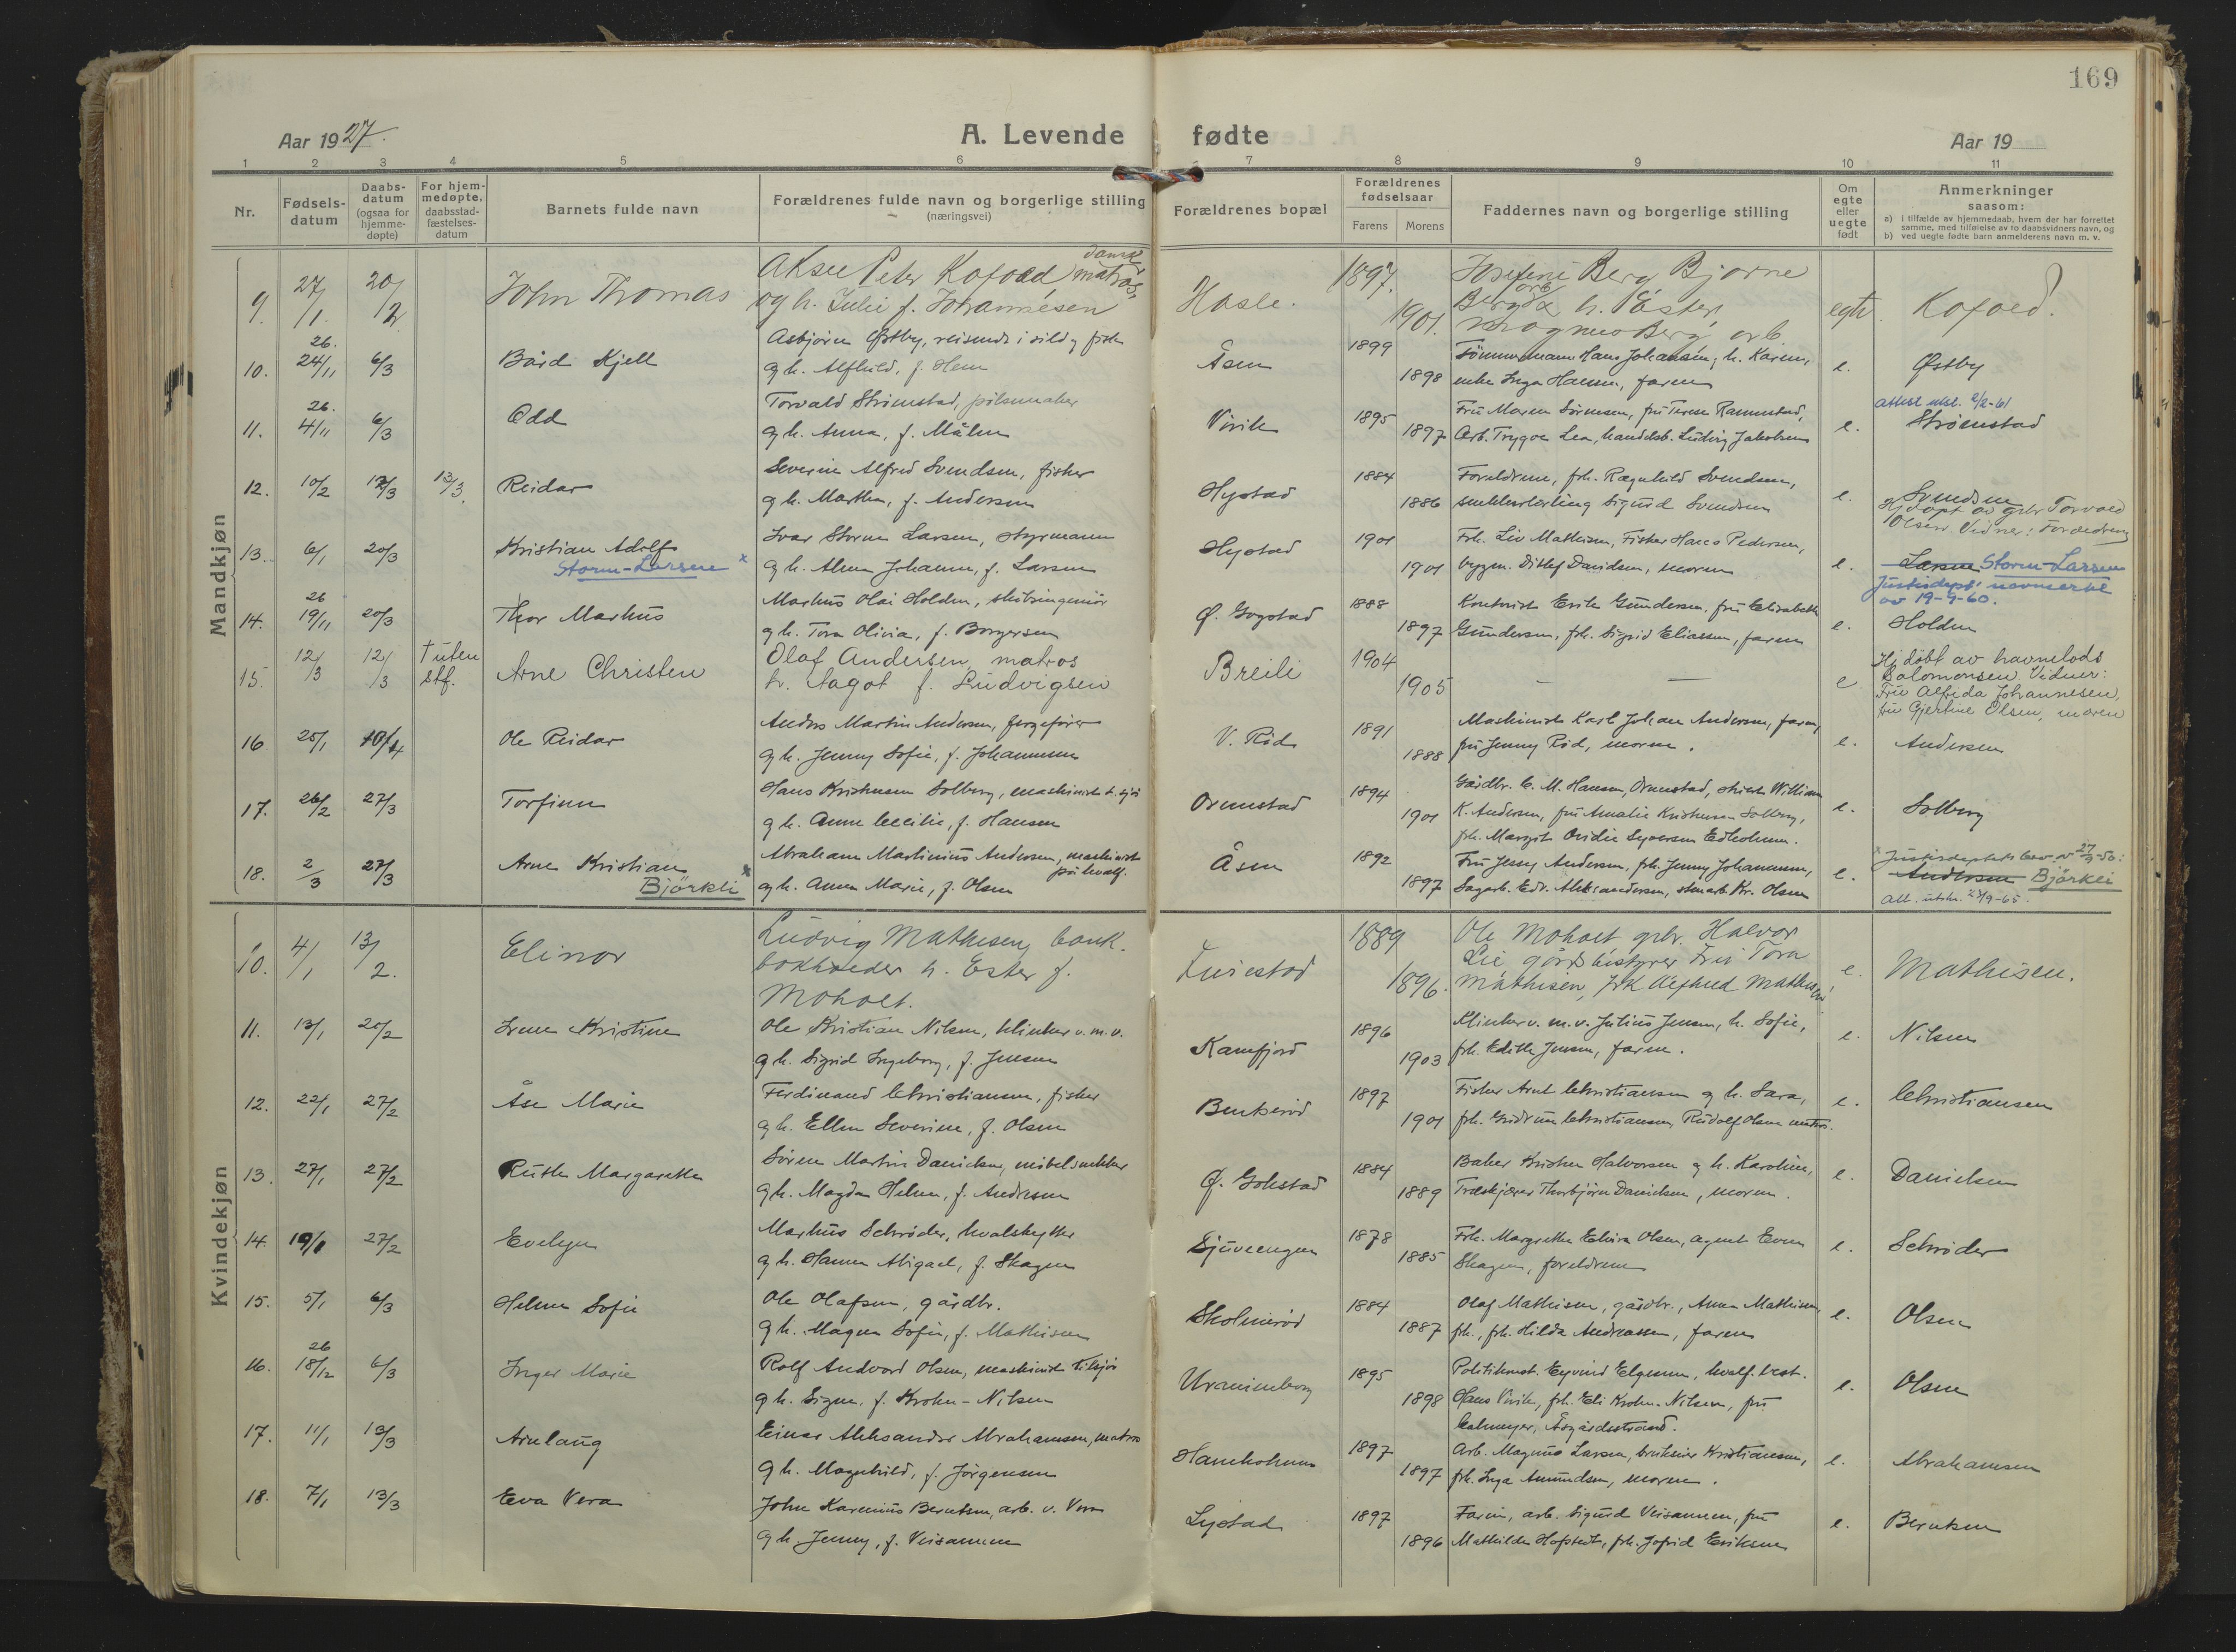 169
Aar 1927.
A. Levende fødte
Aar 19
1 2 3 4 5 6 7 8 9 10 11
Nr.
Fødsels-
datum
Daabs-
datum
(ogsaa for
hjemme-
døpte)
For hjem-
medøpte,
daabsstad-
fæstelses-
datum
Barnets fulde navn
Forældrenes fulde navn og borgerlige stilling
(næringsvei)
Forældrenes bopæl
Forældrenes
fødselsaar
Farens Morens
Faddernes navn og borgerlige stilling
Om
egte
eller
uegte
født
Anmerkninger
saasom:
a) i tilfælde av hjemmedaab, hvem der har forrettet
samme, med tilføielse av to daabsvidners navn, og
b) ved uegte fødte barn anmelderens navn m. v.
Mandkjøn
9. 27/1 20/2 John Thomas
Aksel Peter Kofoed dansk matros,
og h. Julie f. Johannesen
Hasle. 1897. 1901.
Josefine Berg Bjarne
Berg arb. h. Ester,
Magnus Berg arb.
egte. Kofoed.
10. 26. 24/11 6/3 Bård Kjell
Asbjørn Østby, reisende i sild og fisk
og h. Alfhild, f. Hem
Åsen 1899 1898
Tømmermann Hans Johansen, h. Karen,
enke Inga Hansen, faren
e. Østby
11. 26. 4/11 6/3 Odd
Torvald Strömstad, pölsemaker
og h. Anna, f. Målen
Virik 1895 1897
Fru Maren Sörensen, fru Terese Ramnestad,
Arb. Trygve Lea, handelsb. Ludvig Jakobsen
e. attest utst. 2/2-61
Strömstad
12. 10/2 12/3 13/3. Reidar
Severin Alfred Svendsen, fisker
og h. Marthe, f. Andersen
Hystad 1884 1886
Foreldrene, frk. Ragnhild Svendsen,
snekkerlærling Sigurd Svendsen
e. Svendsen
Hj.døpt av grb. Torvald
Olsen. Vidner: Foreldrene
13. 6/1 20/3 Kristian Adolf
Storm-Larsen x
Ivar Storm Larsen, styrmann
og h. Alma Johanne, f. Larsen
Hystad 1901 1901
Frk. Liv Mathisen, Fisker Hans Pedersen,
byggm. Ditlef Davidsen, moren
e. Larsen Storm-Larsen
Justisdept. navneendr.
av 19-9-60.
14. 26 19/11 20/3 Thor Markus
Markus Olai Holden, skibsingeniør
og h. Tora Olivia, f. Borgersen
Ø. Gogstad 1888 1897
Kontorist Erik Gundersen, fru Elisabeth
Gundersen, frk. Sigrid Eliassen, faren
e. Holden
15. 12/3 12/3 † uten stf. Arne Christen
Olaf Andersen, matros
h. Aagot f. Ludvigsen
Breili 1904 1905 — —
e Hj.döbt av havnelods
Salomonsen Vidner:
Fru Alfrida Johannesen,
fru Gjertine Olsen, moren
16 25/1 10/4 Ole Reidar
Anders Martin Andersen, fergefører
og h. Jenny Sofie, f. Johannesen
V. Röd 1891 1888
Maskinist Karl Johan Andersen, faren,
fru Jenny Röd, moren.
e. Andersen
17. 26/2 27/3 Torfinn
Hans Kristensen Solberg, maskinist t. sjös
og h. Anna Cecilie, f. Hansen
Ormestad 1894 1901
Gårdbr. C. M. Hansen, Ormestad, William
K. Andersen, fru Amalie Kristensen Solberg,
frk. Margit Ovidie Syversen Edholmen.
e. Solberg
18. 2/3 27/3 Arne Kristian
Björkli x
Abraham Martinius Andersen, maskinist
på hvalf.
og h. Anna Marie, f. Olsen
Åsen 1892 1897
Fru Jenny Andersen, frk. Jenny Johannesen,
Sagarb. Edv. Aleksandersen, stenarb. Kr. Olsen
e. x Justisdeptets bev. av 27/3-50:
Andersen Björkli
Att. utstn. 27/9-65.
Kvindekjøn
10. 4/1 13/2. Elinor
Ludvig Mathisen, bank-
bokholder h. Ester f.
Moholt.
1889 1896.
Ole Moholt grb. Halvor
Lie gårdsbestyrer Fru Tora
Mathisen, frk Alfhild Mathisen
e. Mathisen.
11. 13/1 20/2 Irene Kristine
Ole Kristian Nilsen, klinker v. m. v.
og h. Sigrid Ingeborg, f. Jensen
Kamfjord 1896 1903
Klinker v. m. v. Julius Jensen, h. Sofie,
frk. Edith Jensen, faren.
e. Nilsen
12. 22/1 27/2 Åse Marie
Ferdinand Christiansen, fisker
og h. Ellen Severine, f. Olsen
Bentserød 1897 1901
Fisker Arnt Christiansen og h. Sara,
frk. Gudrun Christiansen, Rudolf Olsen matros.
e. Christiansen
13. 27/1 27/2 Ruth Margarethe
Sören Martin Danielsen, möbelsnekker
og h. Magda Helene, f. Andresen
Ø. Gokstad 1884 1889
Baker Kristen Halvorsen og h. Karoline,
Træskjærer Thorbjörn Danielsen, moren.
e. Danielsen
14. 19/1 27/2 Evelyn
Markus Schrøder, hvalskytter
og h. Hanna Abigael, f. Skagen
Sjuveengen 1878 1885
Frk. Margrethe Elvira Olsen, agent Even
Skagen, foreldrene
e. Schröder
15. 5/1 6/3 Helene Sofie
Ole Olafsen, gårdbr.
og h. Magna Sofie, f. Mathisen
Skolmeröd 1884 1887
Olaf Mathisen, gårdbr., Anna Mathisen,
frk., frk. Hilda Andreassen, faren
e. Olsen
16. 26 18/12 6/3 Inger Marie
Rolf Andvord Olsen, maskinist tilsjös
og h. Signe, f. Krohn-Nilsen
Uranienborg 1895 1898
Politikonst. Eyvind Elgesem, hvalf.best.
Hans Virik, frk. Eli Krohn-Nilsen, fru
Åsgårdsstrand.
e. Olsen
17. 11/1 13/3 Arnlaug
Einar Aleksander Abrahamsen, matros
og h. Magnhild, f. Jörgensen
Haneholmen 1897 1897
Arb. Magnus Larsen, Kristiansen,
frk. Inga Amundsen, moren.
e. Abrahamsen
18. 7/1 13/3 Eva Vera
John Karenius Berntsen, arb. v. Vera
og h. Jenny, f. Veisannen
Lystad 1897 1896
Faren, arb. Sigurd Veisannen, fru
Mathilde Hofstedt, frk. Jofrid Eriksen
e. Berntsen